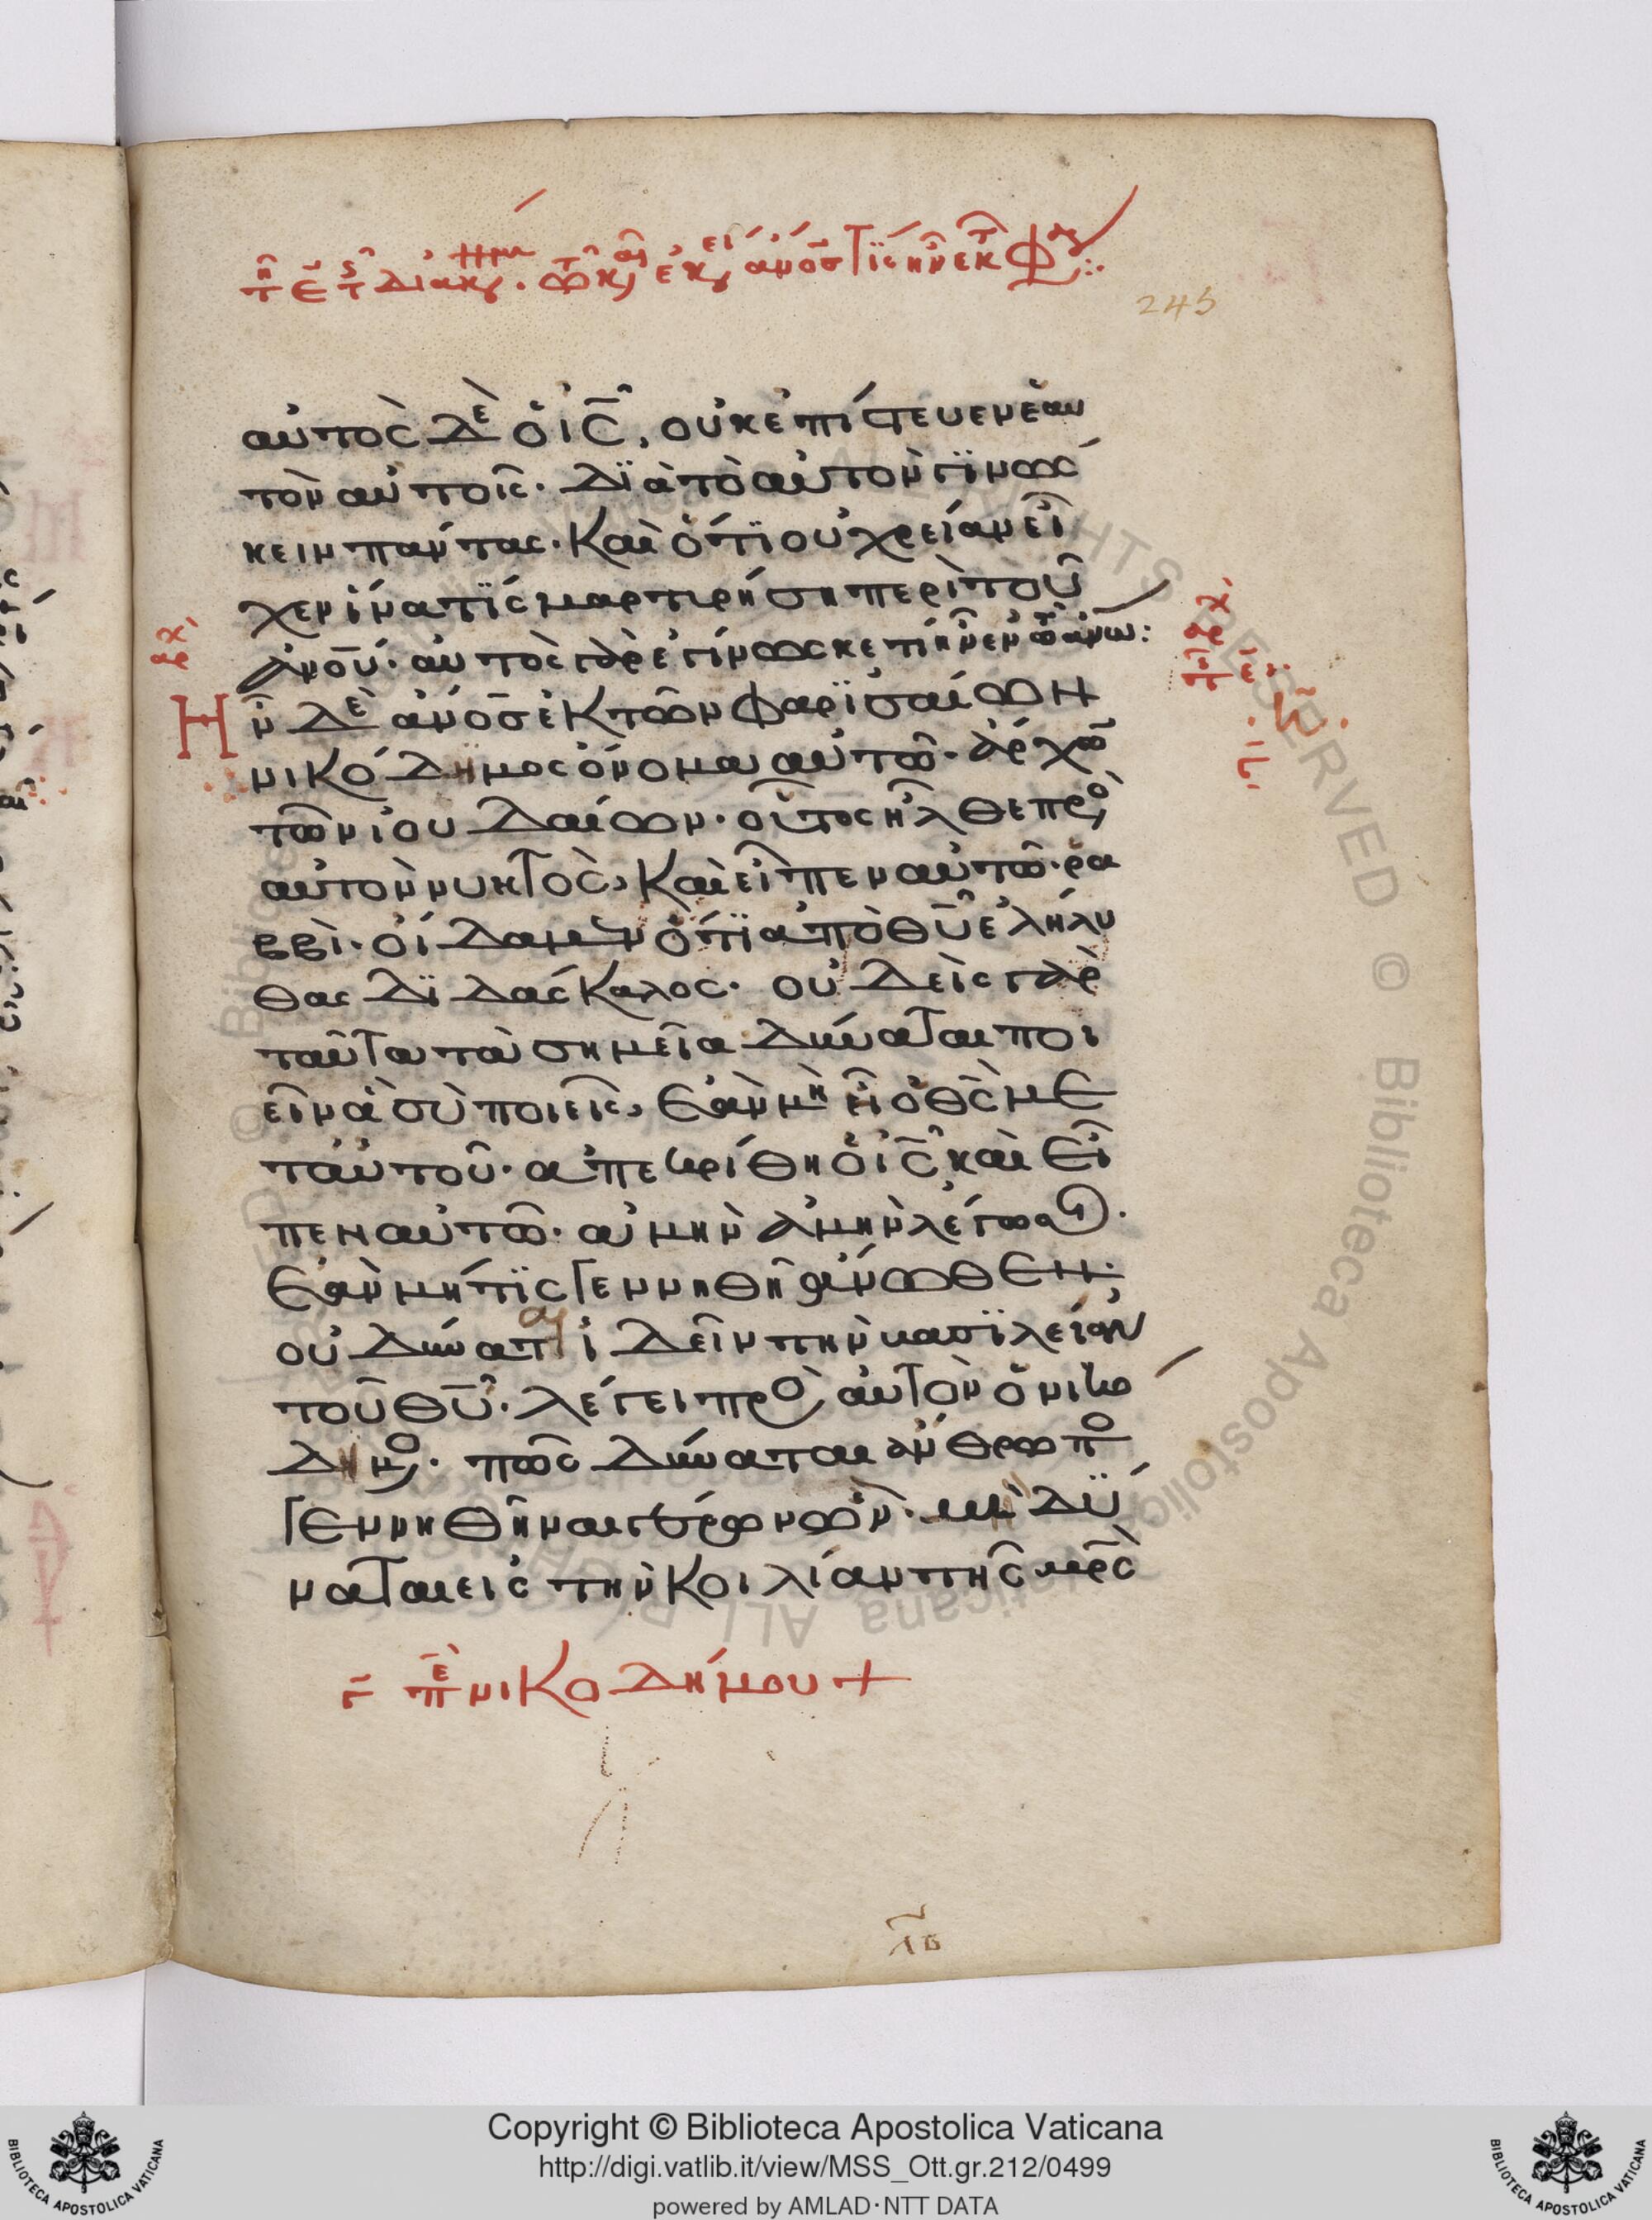 245
αὐτὸς δὲ ὁ ἰς̅, οὐκ ἐπίστευεν ἑαυ
τὸν αὐτοῖς· δϊὰ τὸ αὐτὸν γϊνώσ
κειν πάντας· καὶ ὅτϊ οὐ χρείαν εἶ
χεν ἵνα τϊς μαρτυρήση περὶ τοῦ
ἀνου̅· αὐτὸς γὰρ ἐγίνωσκε τί ἦν ἐν τῶ ἀνω̅:
Ην δὲ ἀνος̅ ἐκ τῶν φαρϊσαίων
νικόδημος ὄνομα αὐτῶ· ἄρχω
τῶν ἰουδαίων· οὗτος ἦλθε πρὸς
αὐτὸν νυκτὸς, καὶ εἶπεν αὐτῶ· ρα
ββὶ· οἴδαμεν ὅτϊ ἀπὸ θυ̅ ἐλήλυ
θας δϊδάσκαλος· οὐδεὶς γὰρ
ταῦτα τὰ σημεῖα δύναται ποι
εῖν ἃ σὺ ποιεῖς, ἐὰν μὴ ἦ ὁ θς̅ με
τ αὐτοῦ· ἀπεκρίθη ὁ ἰς̅ καὶ εἶ
πεν αὐτῶ· ἀμὴν ἀμὴν λέγω σοι·
ἐὰν μή τϊς γεννηθῆ ἄνωθεν·
οὐ δύναται ἰδεῖν τὴν βασϊλείαν
τοῦ θυ̅· λέγει πρὸς αὐτὸν ὁ νικό
δημος· πῶς δύναται ἄνθρωπος
γεννηθῆναι γέρων ὤν· μὴ δύ
ναται εἰς τὴν κοιλίαν τῆς μρς̅
γ̅ πε νικοδήμου +
Copyright © Biblioteca Apostolica Vaticana
http://digi.vatlib.it/view/MSS_Ott.gr.212/0499
powered by AMLAD·NTT DATA
BIBLIOTECA APOSTOLICA VATICANA
BIBLIOTECA APOSTOLICA VATICANA